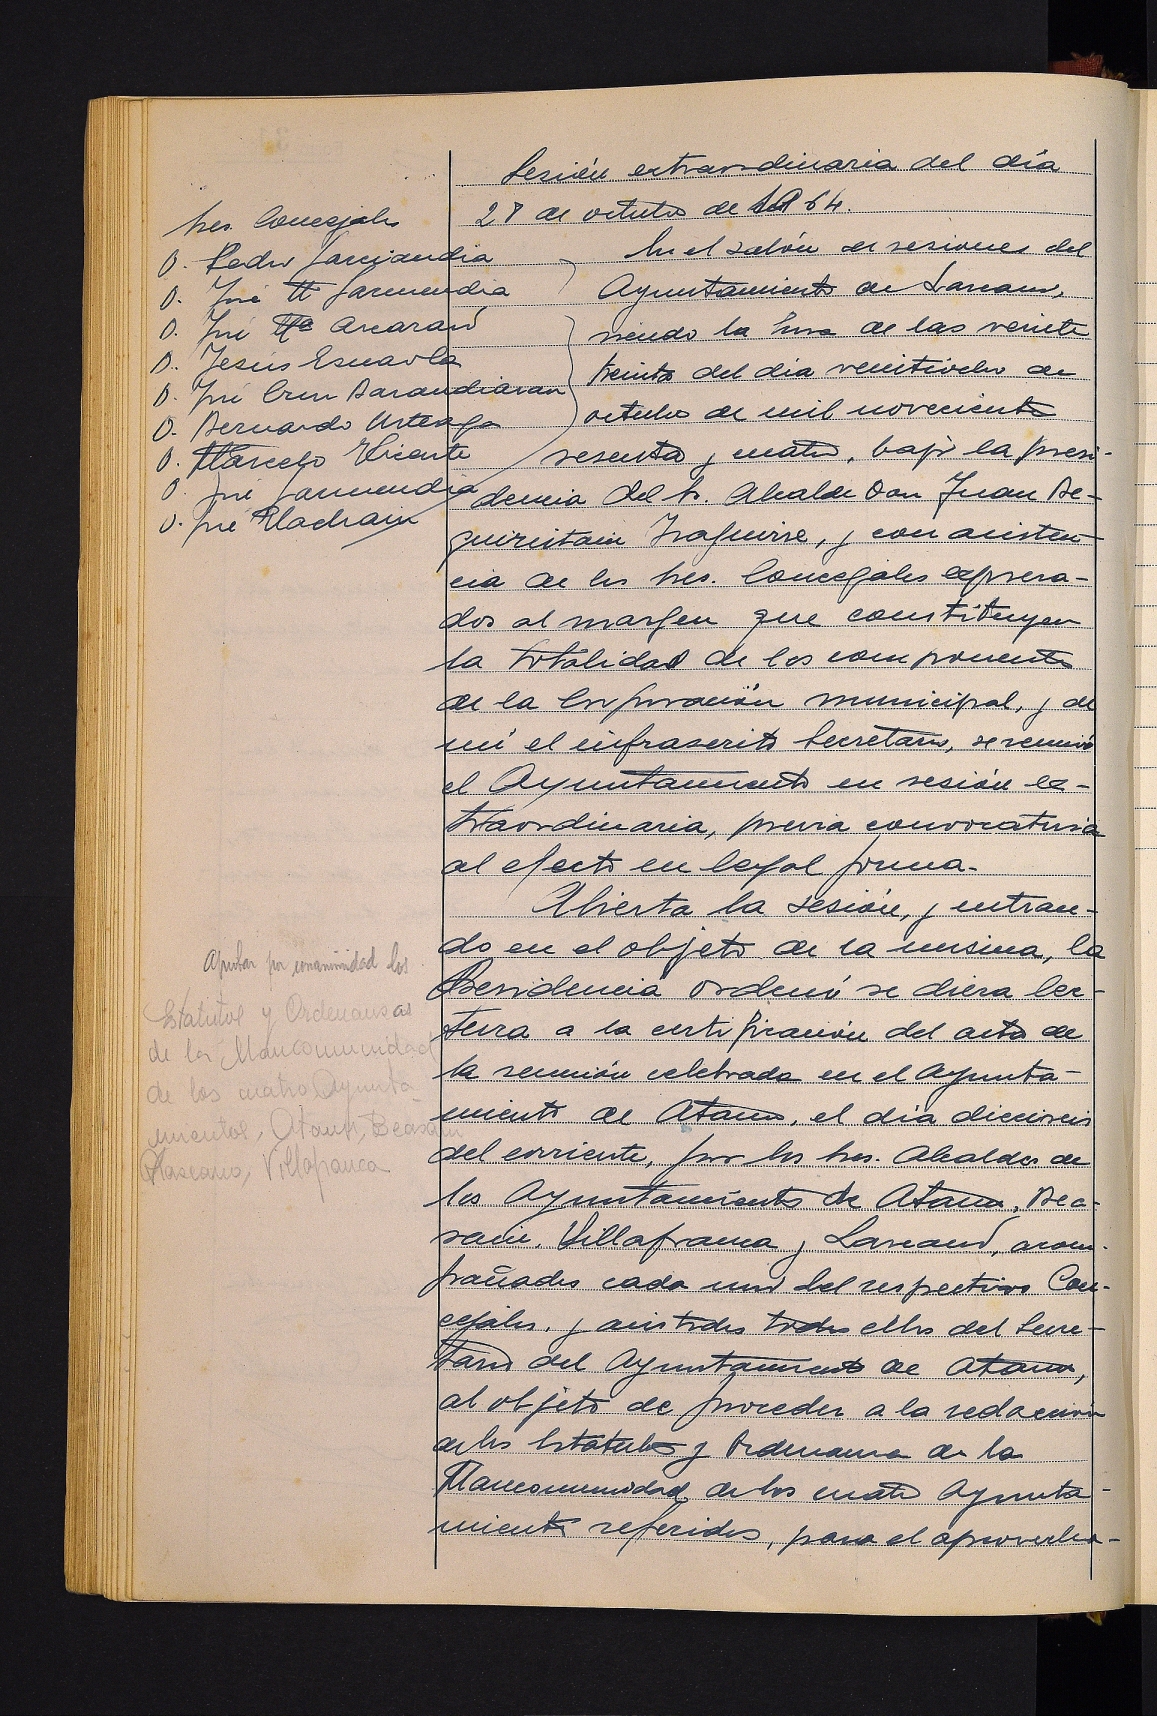 Sesión extraordinaria del día
28 de octubre de 1964.
Sres. Concejales
D. Pedro Garciandia
D. José Mª Garmendia
D. José Mª Aracama
D. Jesús Esnaola
D. José Cruz Barandiaran
D. Bernardo Urteaga
D. Marcelo Vicente
D. José Garmendia
D. José Machain
En el salón de sesiones del
Ayuntamiento de Lazcano,
siendo la hora de las veinte
treinta del día veintiocho de
octubre de mil novecientos
sesenta y cuatro, bajo la presi-
dencia del Sr. Alcalde Don Juan Be-
guiristain Izaguirre, y con asisten-
cia de los Sres. Concejales expresa-
dos al margen que constituyen
la totalidad de los componentes
de la Corporación municipal, y de
mí el infrascrito Secretario, se reunió
el Ayuntamiento en sesión ex-
traordinaria, previa convocatoria
al efecto en legal forma.
Abierta la sesión, y entran-
do en el objeto de la misma, la
Presidencia ordenó se diera lec-
tura a la certificación del acta de
la reunión celebrada en el Ayunta-
miento de Ataun, el día dieciseis
del corriente, por los Sres. Alcaldes de
los Ayuntamientos de Ataun, Bea-
sain, Villafranca y Lazcano, acom-
pañados cada uno del respectivo Con-
cejales, y asistidos todos ellos del Secre-
tario del Ayuntamiento de Ataun,
al objeto de proceder a la redacción
de los Estatutos y Ordenanza de la
Mancomunidad de los cuatro Ayunta-
mientos referidos, para el aprovecha-
Aprobar por unanimidad los
Estatutos y Ordenanzas
de la Mancomunidad
de los cuatro Ayunta-
mientos, Ataun, Beasain
Lazcano, Villafranca